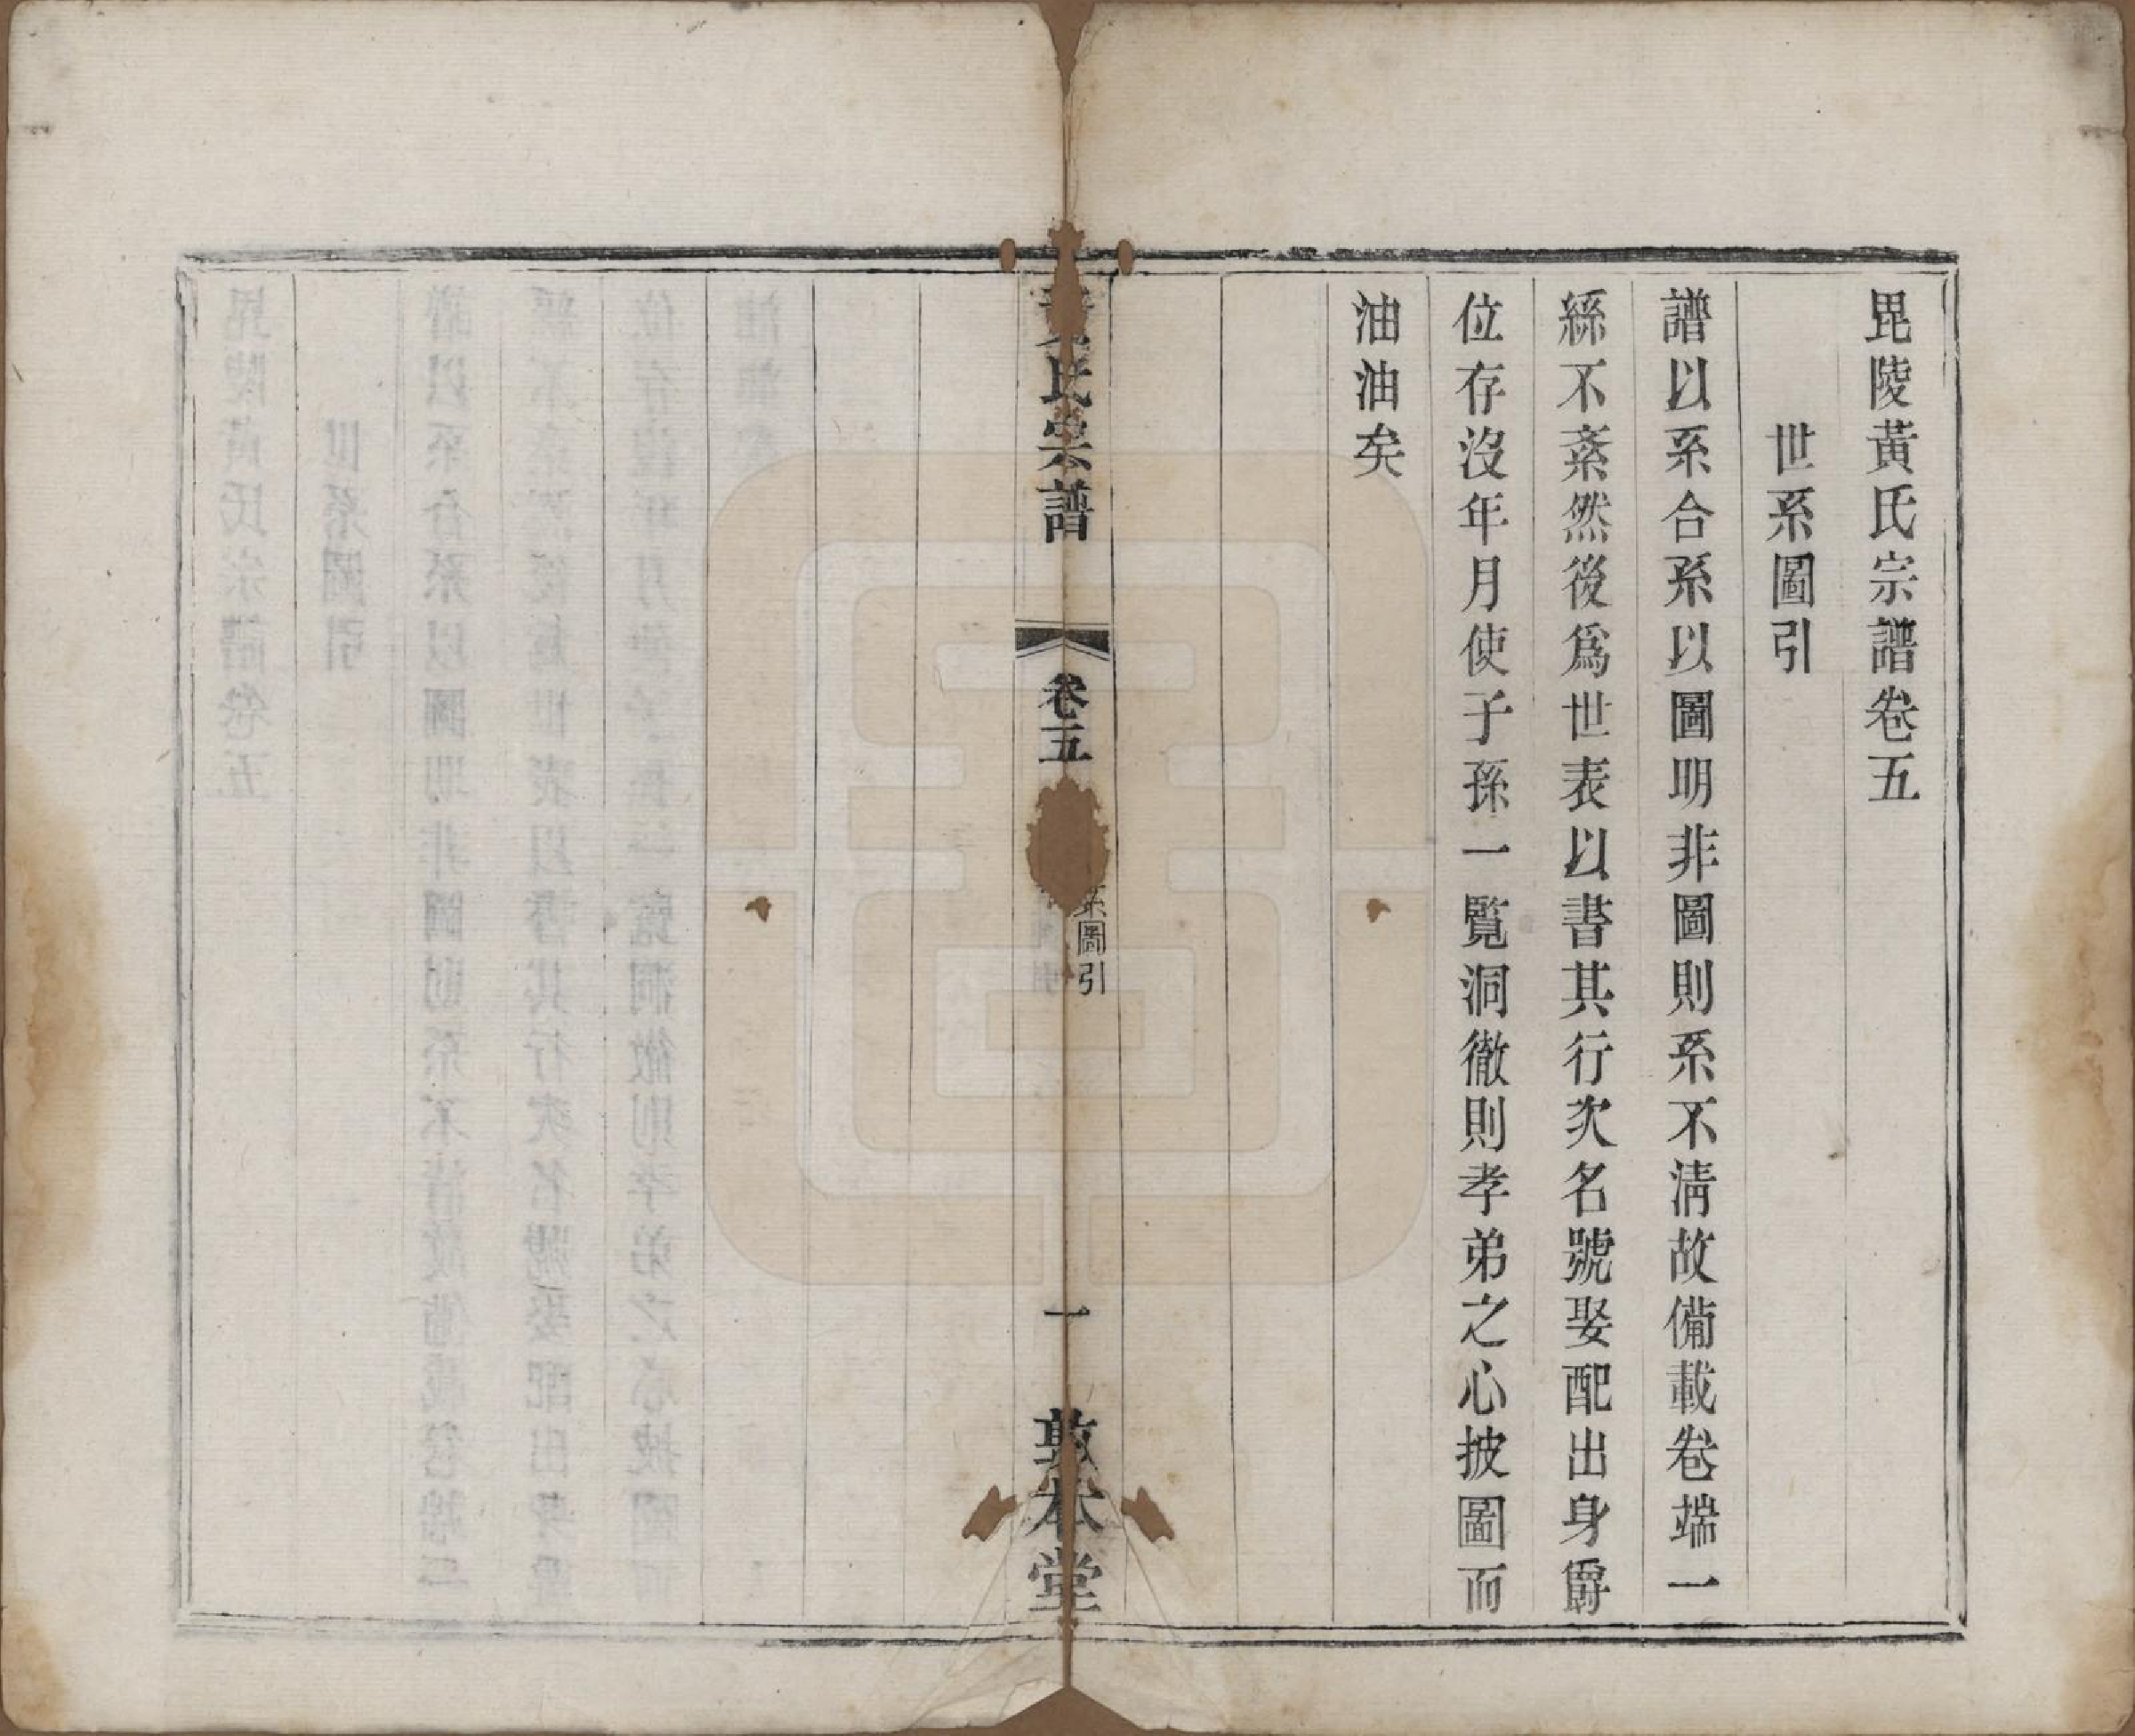 毘陵黃氏宗譜卷五
世系圖引
譜以系合系以圖明非圖則系不淸故備載卷端一
絲不紊然後爲世表以書其行次名號娶配出身爵
位存沒年月使子孫一覽洞徹則孝弟之心披圖而
油油矣
氏宗譜
卷五
系圖引
一
敦本堂